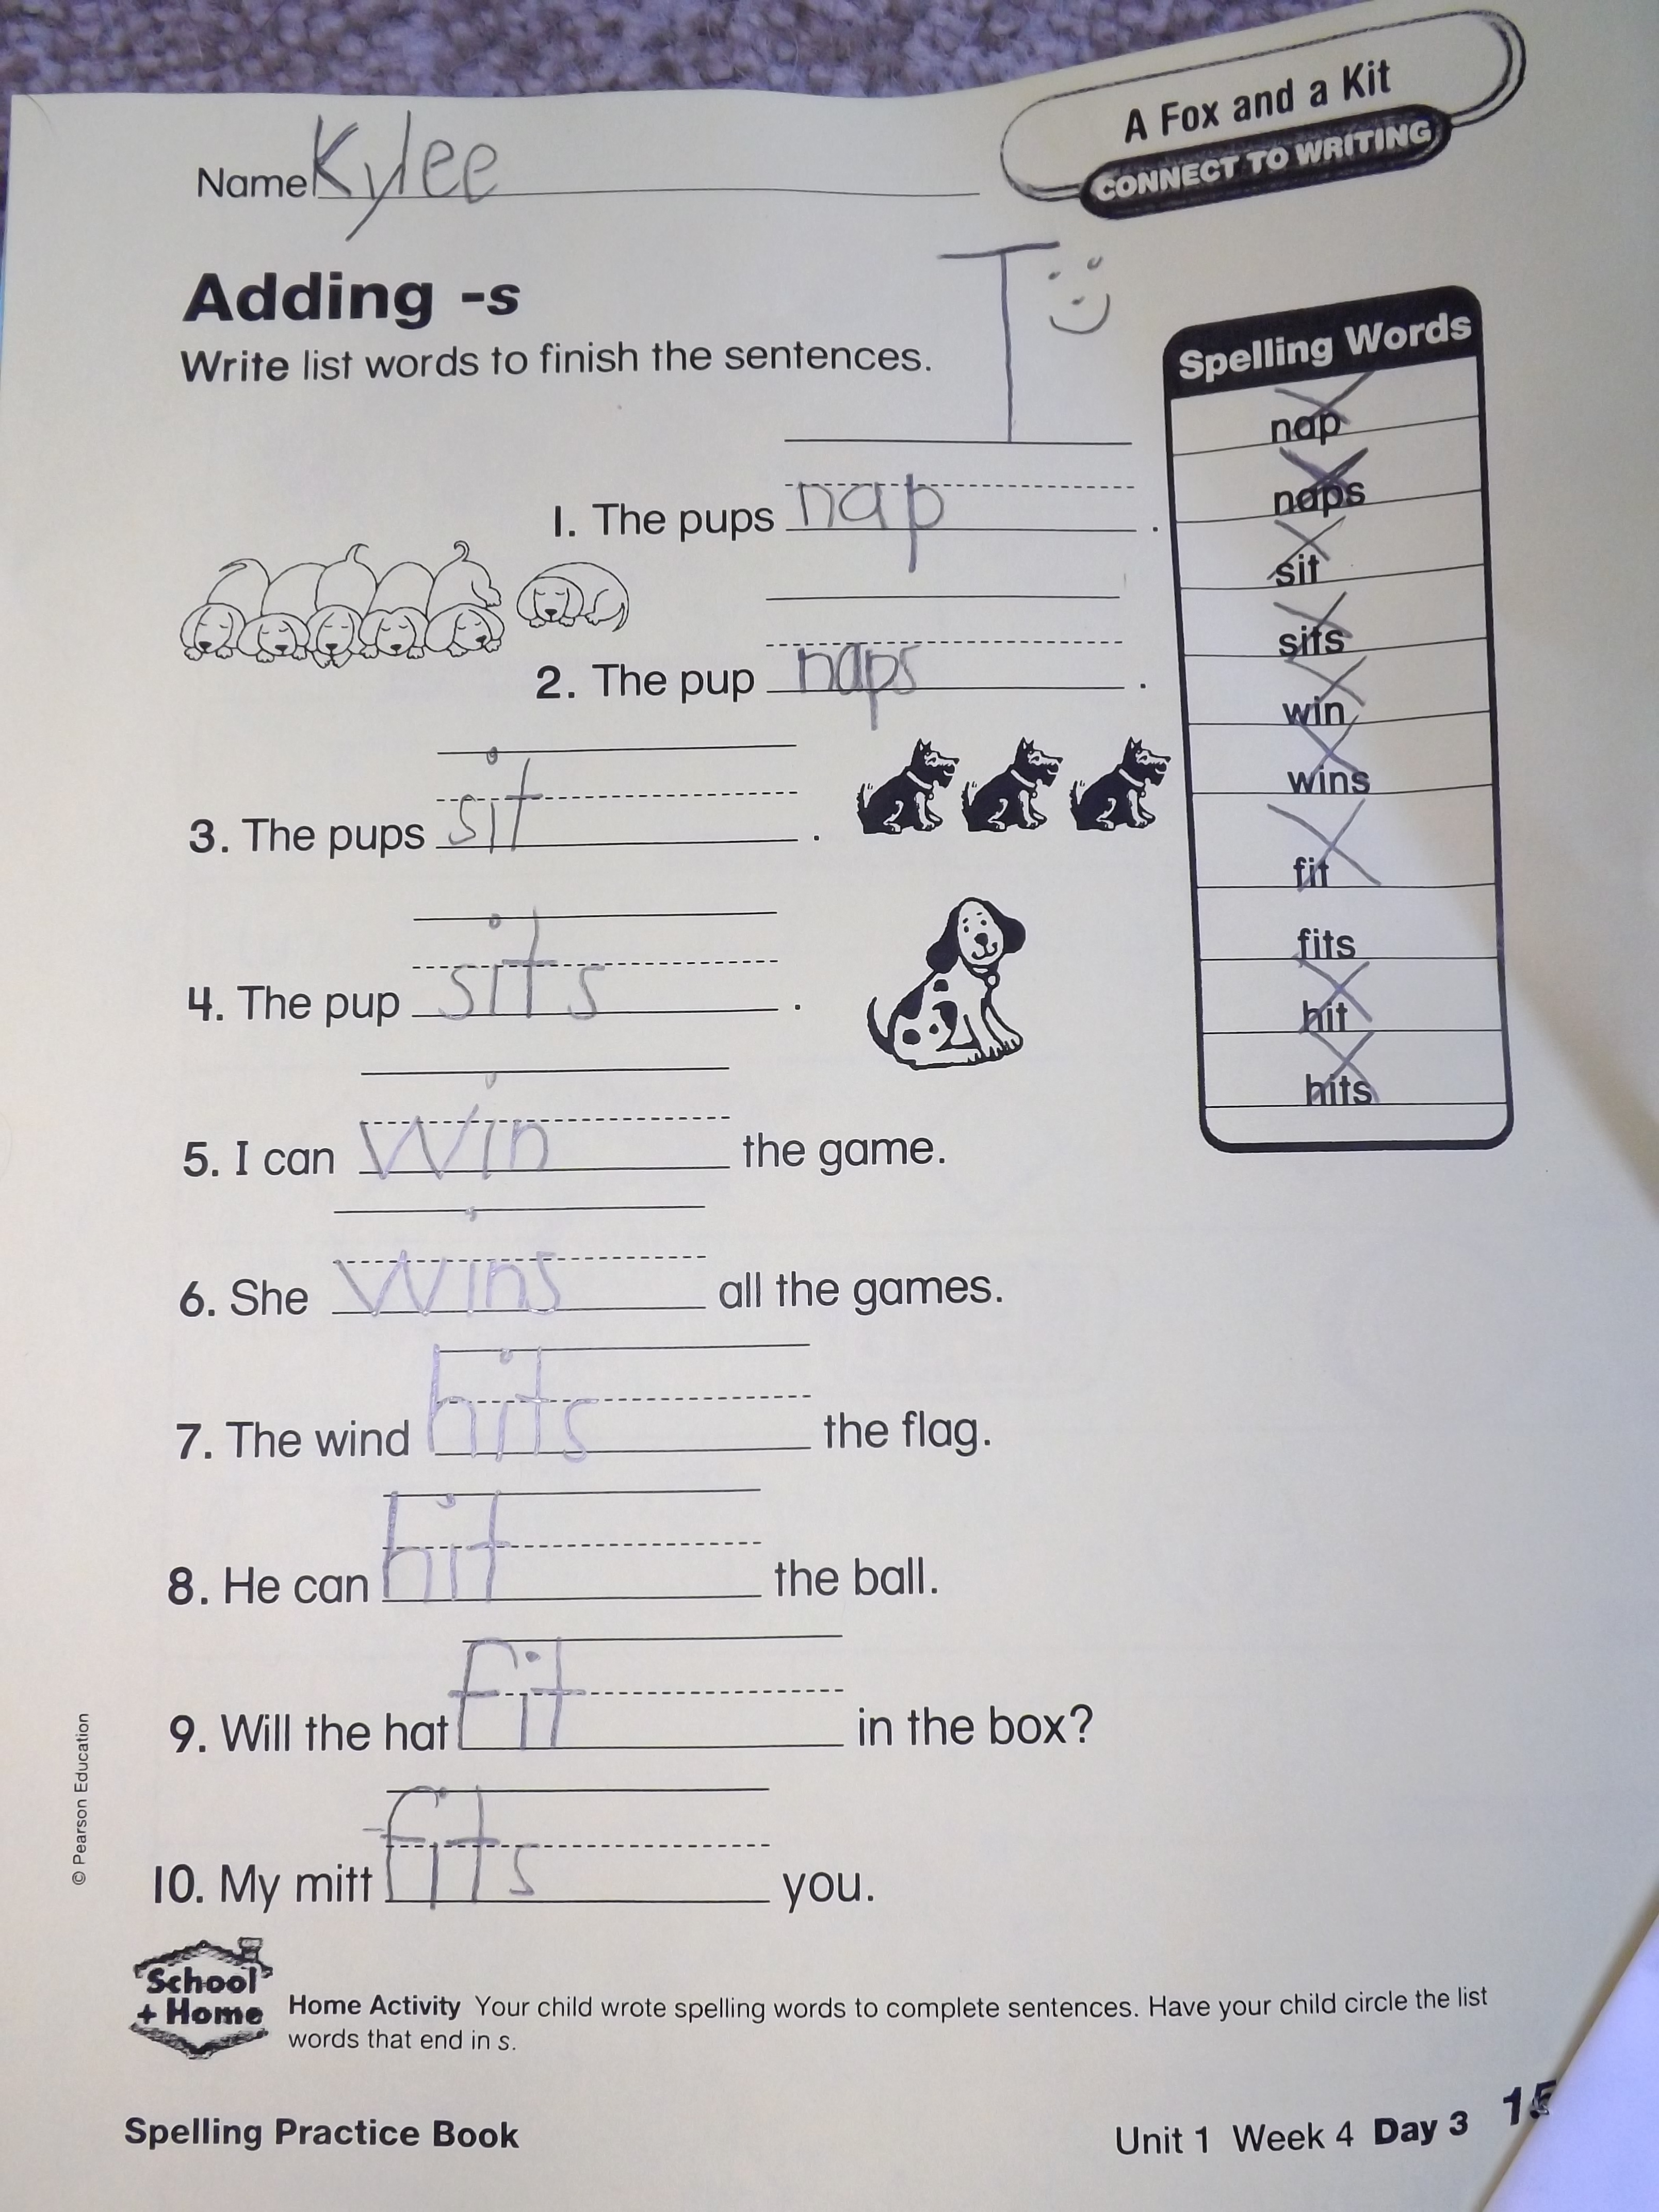 A Fox and a Kit
CONNECT TO WRITING
Name Kylee
T
Adding -s
Write list words to finish the sentences.
Spelling Words
nap
naps
sit
sits
win
wins
fit
fits
hit
hits
1. The pups nap .
2. The pup naps .
3. The pups sit .
4. The pup sits .
5. I can win the game.
6. She wins all the games.
7. The wind hits the flag.
8. He can hit the ball.
9. Will the hat fit in the box?
10. My mitt fits you.
© Pearson Education
School
+ Home
Home Activity Your child wrote spelling words to complete sentences. Have your child circle the list
words that end in s.
Spelling Practice Book
Unit 1 Week 4 Day 3 15